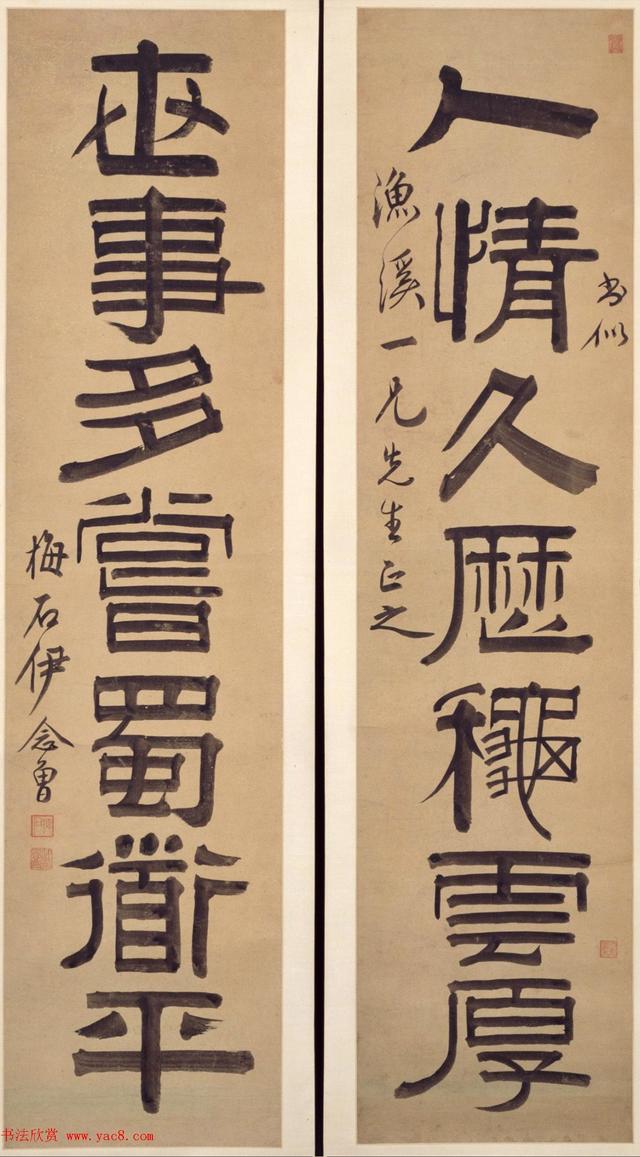 书似
人情久歷穐雲厚
漁溪一兄先生正之
世事多嘗蜀衟平
梅石伊念曾
书法欣赏 www.yac8.com